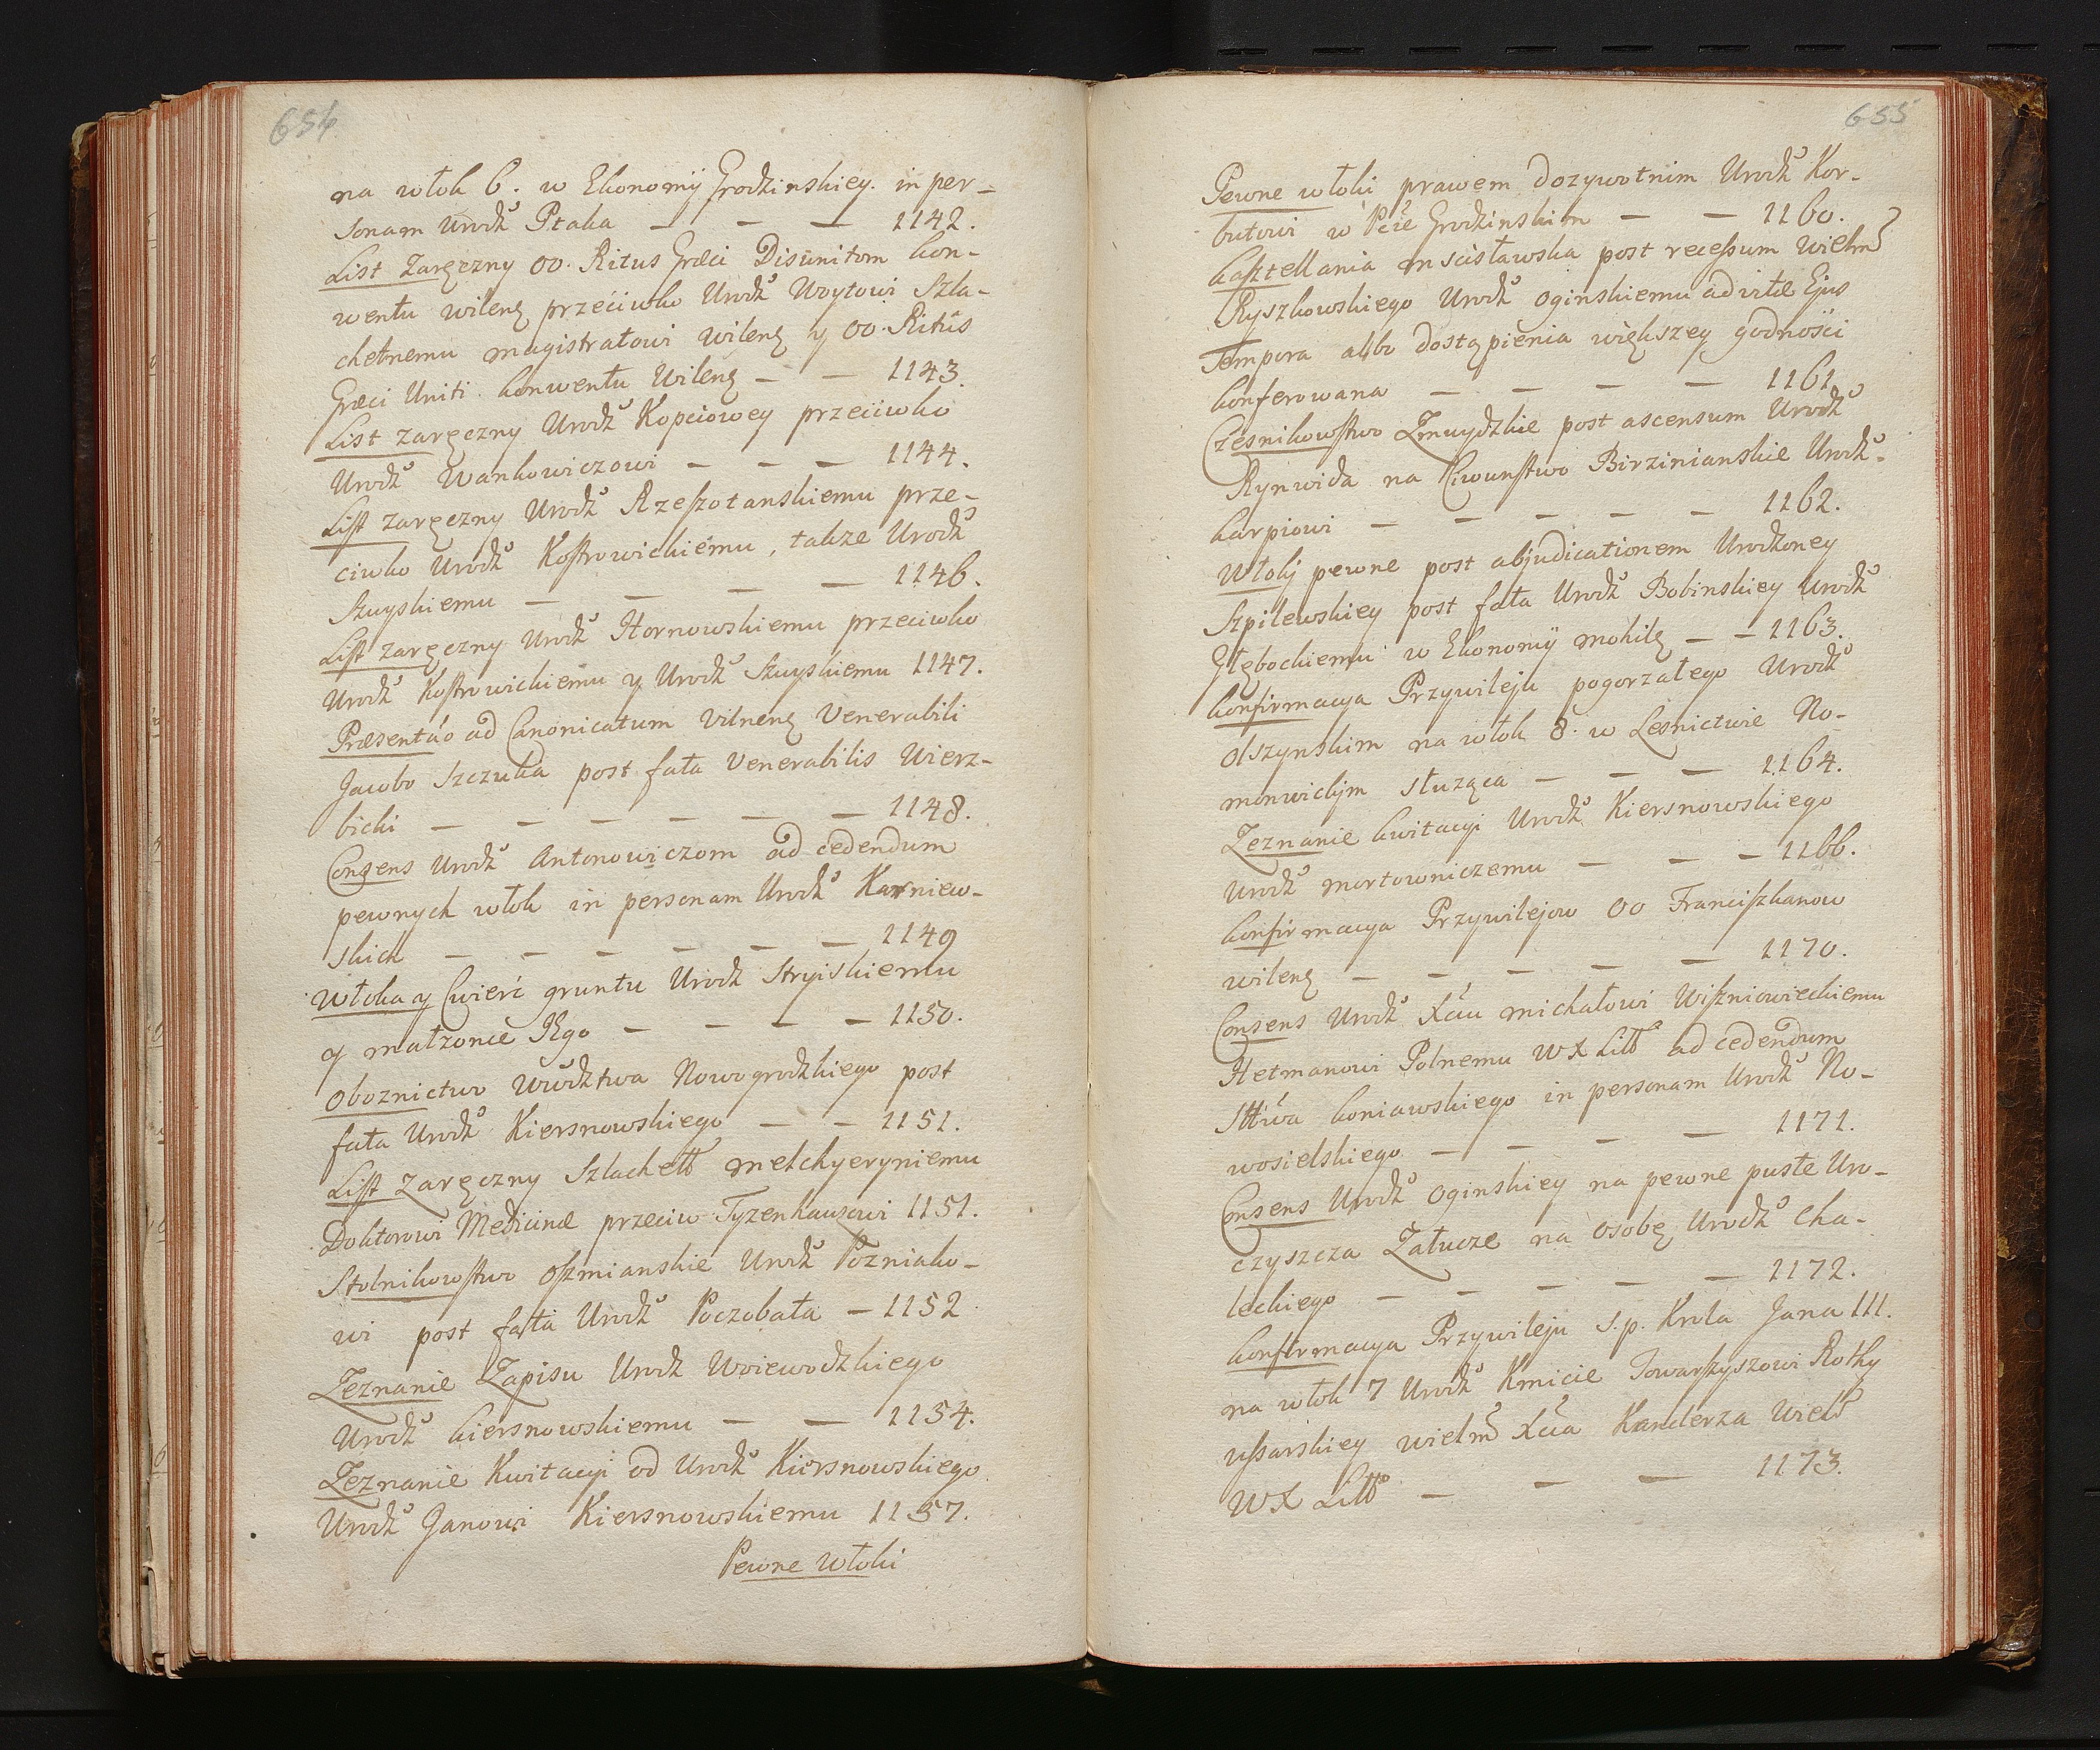 654
na włok 6. w Ekonomij Grodzinskiey. in per-
sonam Urodź Ptaka — — — 1142.
List Zaręczny OO. Ritus Græci Disunitom kon-
wentu wileng przeciwko Urodź Woytowi Szla-
chetnemu magistratowi wileng y OO. Ritus
Græci Uniti konwentu Wileng — — 1143.
List zaręczny Urodź Kopciowey przeciwko
Urodź Wankowiczowi — — — 1144.
List zaręczny Urodź Rzeszotanskiemu prze-
ciwko Urodź Kostrowickiemu, takze Urodź
Szuyskiemu — — — — 1146.
List zaręczny Urodź Hornowskiemu przeciwko
Urodź Kostrowickiemu y Urodź Szuyskiemu 1147.
Præsentáo ad Canonicatum Vilneng Venerabili
Jacobo Szczuka post fata Venerabilis Wierz-
bicki — — — — — — 1148.
Consens Urodź Antonowiczom ad cedendum
pewnych włok in personam Urodź Karniew-
skich — — — — — — 1149
Włoka y Cwierć gruntu Urodź Stryiskiemu
y małzonce JEgo — — — — 1150.
Oboznictwo Wwdztwa Nowogrodzkiego post
fata Urodź Kiersnowskiego — — 1151.
List Zaręczny Szlachett melchyeryniemu
Doktorowi Medicinæ przeciw Tyzenhauzowi 1151.
Stolnikowstwo Oszmianskie Urodź Pozniako-
wi post fata Urodź Poczobata — 1152
Zeznanie Zapisu Urodź Woiewodzkiego
Urodź kiersnowskiemu — — 1154.
Zeznanie Kwitacyi od Urodź Kiersnowskiego
Urodź Janowi Kiersnowskiemu 1157.
Pewne włoki
655
Pewne włoki prawem dozywotnim Urodź Kor-
butowi w Pcie Grodzinskim — — 1160.
kasztellania mscisławska post recessum wielm
Ryszkowskiego Urodź Oginskiemu ad vitæ Ejus
Tempora albo dostąpienia większey godnosci
konferowana — — — — 1161.
Czesnikowstwo Zmuydzkie post ascensum Urodź
Rynwida na Ciwunstwo Birzinianskie Urodź
karpiowi — — — — — 1162.
Włoky pewne post abjudicationem Urodzoney
Szpilewskiey post fata Urodź Bobinskiey Urodź
Głębockiemu w Ekonomij mohilę — — 1163.
konfirmacya Przywileju pogorzałego Urodź
Olszynskim na włok 8. w Lesnictwie No-
monwickym słuząca — — — 1164.
Zeznanie kwitacyi Urodź Kiersnowskiego
Urodź mortowniczemu — — — 1166.
konfirmacya Przywilejow OO Franciszkanow
wileng — — — — — 1170.
Consens Urodź Xciu michałowi Wiszniowieckiemu
Hetmanowi Polnemu WX Litt ad cedendum
Sttwa koniawskiego in personam Urodź No-
wosielskiego — — — — 1171.
Consens Urodź Oginskiey na pewne puste Uro-
czyszcza Załucze na osobę Urodź Cha-
leckiego — — — — — 1172.
konfirmacya Przywileju s.p. Krola Jana III.
na włok 7 Urodź Kmicie Towarzyszowi Rothy
ussarskiey wielm Xcia Kanclerza Wielo
WX Litto — — — 1173.